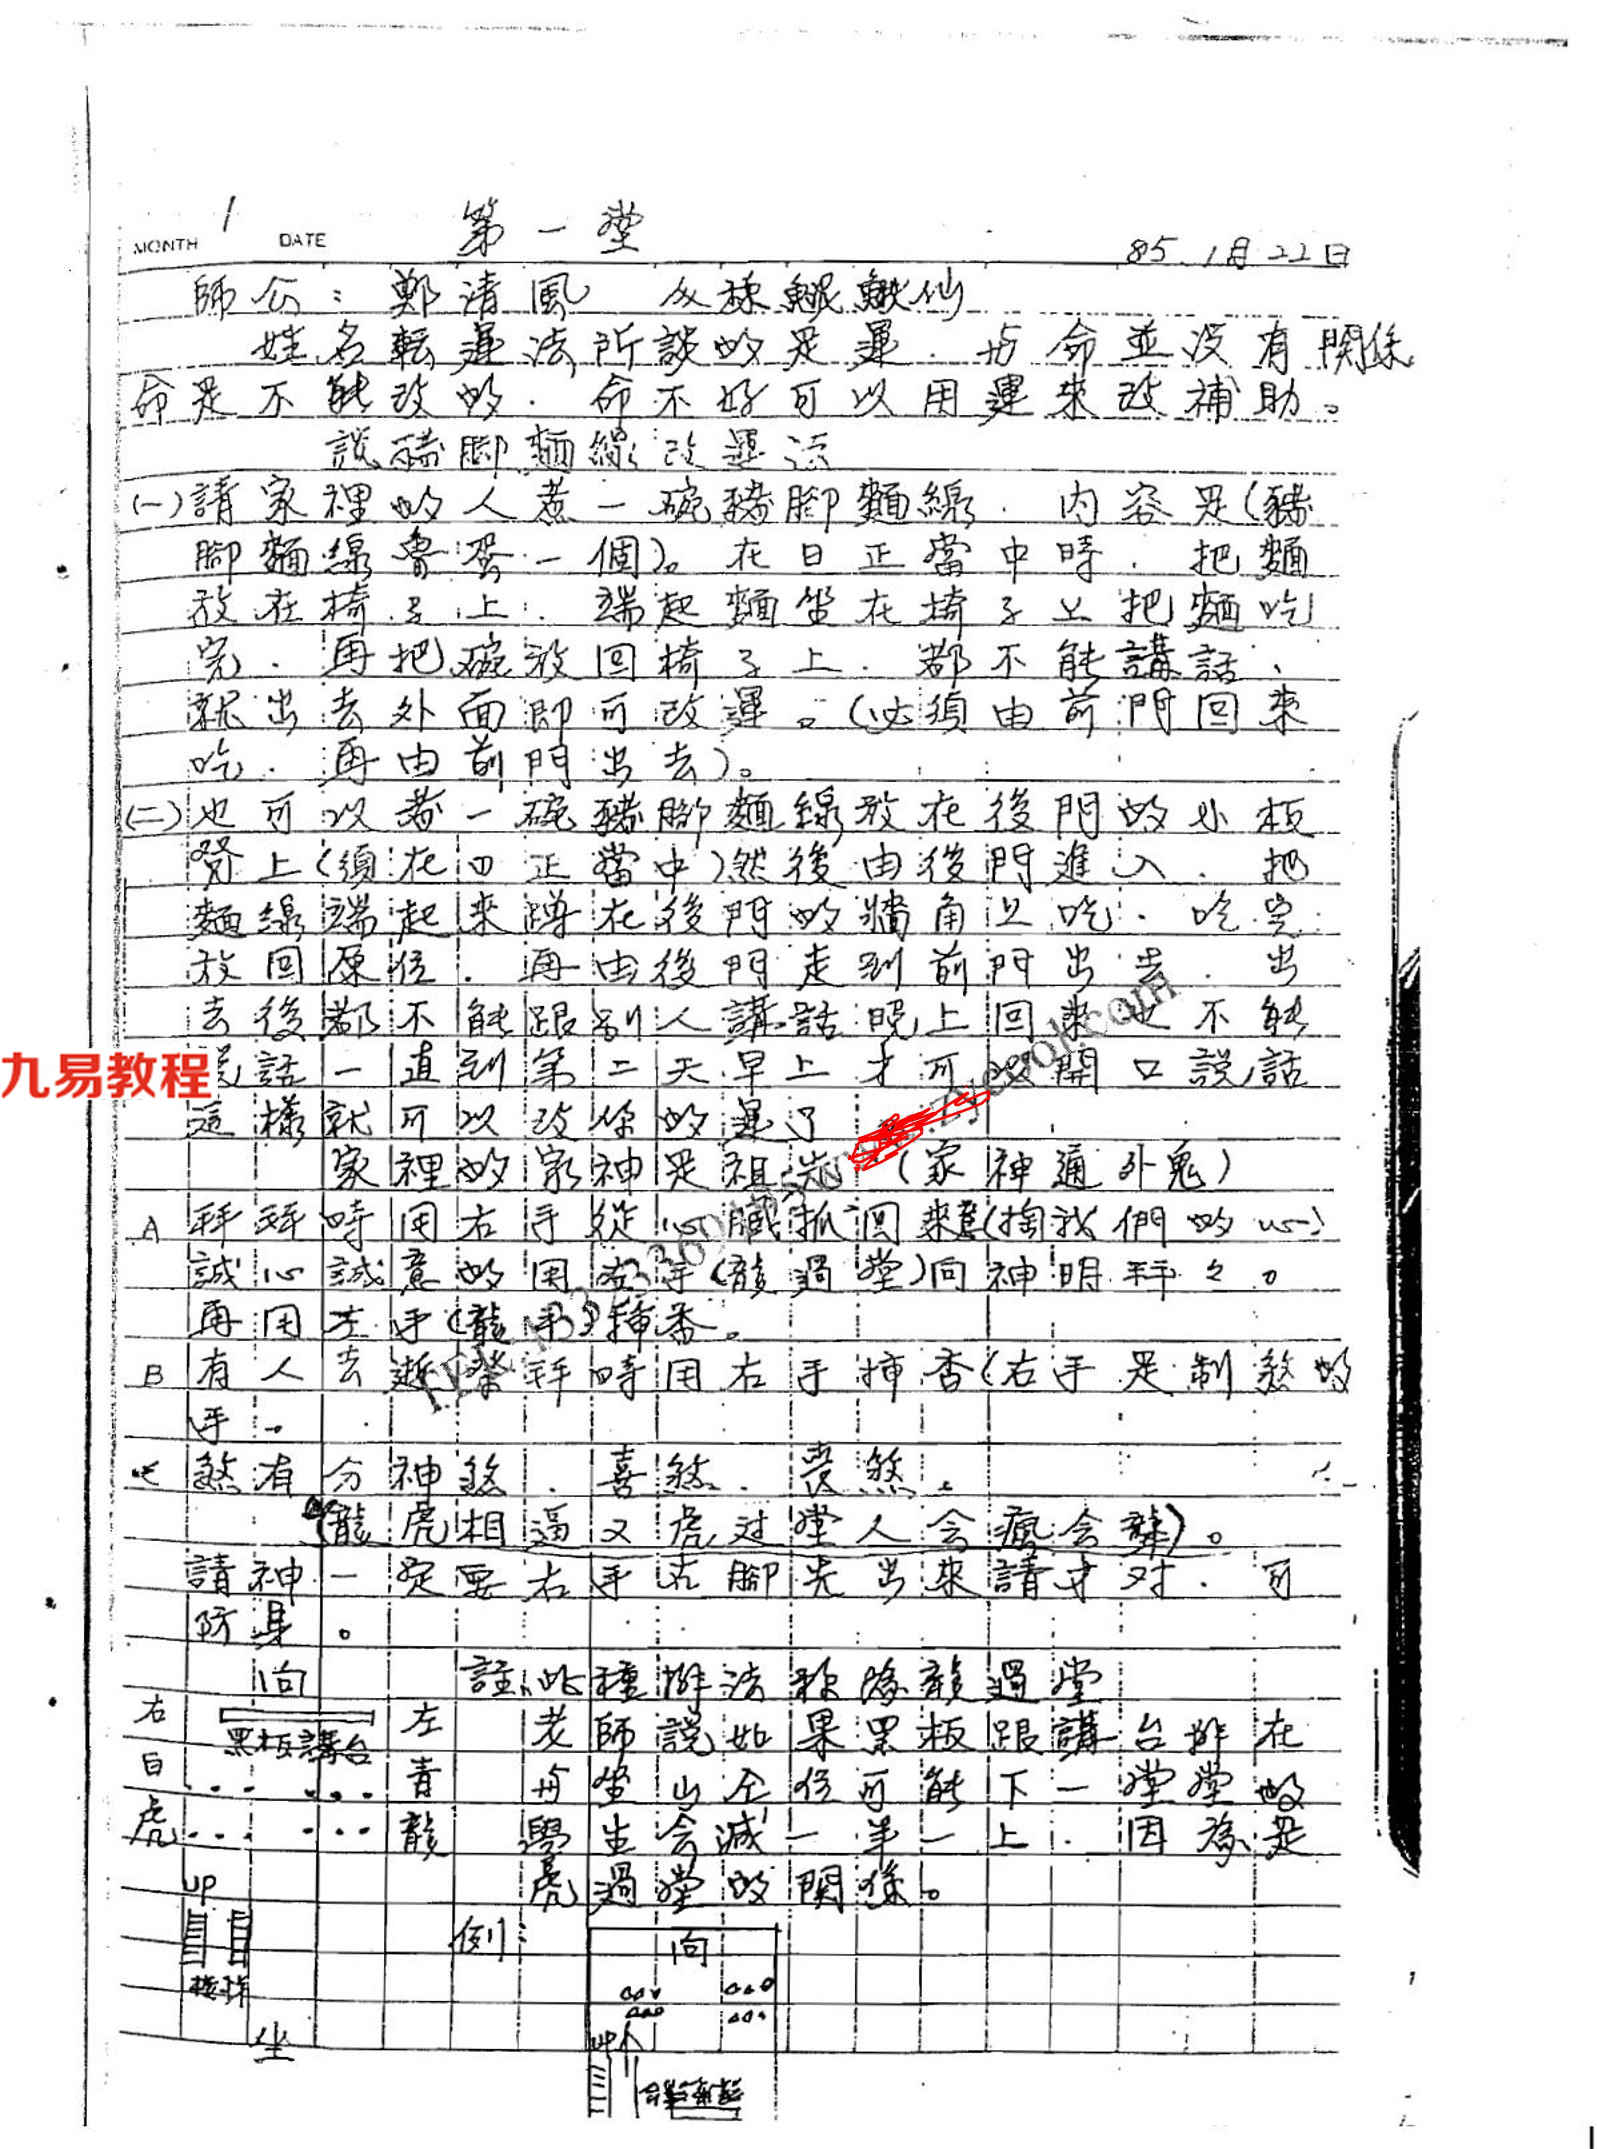 MONTH 1 DATE 第一堂 85.1月22日
師公:鄭清風
姓名転運法所談的是運.与命並没有関係
命是不能改的.命不好可以用運來改補助。
説豬腳麵線改運法
(一)請家裡的人煮一碗豬腳麵線.内容是(豬
腳麵線魯蛋一個)。在日正當中時.把麵
放在椅子上.端起麵坐在椅子上把麵吃
完.再把碗放回椅子上.都不能講話.
就出去外面即可改運。(必須由前門回來
吃.再由前門出去)。
(二)也可以煮一碗豬腳麵線放在後門的小板
凳上(須在日正當中)然後由後門進入.把
麵線端起來蹲在後門的牆角上吃.吃完
放回原位.再由後門走到前門出去.出
去後都不能跟别人講話晚上回來也不能
九易教程
説話一直到第二天早上才可以開口説話
這樣就可以改你的運了
家裡的家神是祖先(家神通外鬼)
A 拜拜時用右手從心臟抓回來意(掏我們的心)
誠心誠意的用右手(龍過堂)向神明拜々。
再用左手(龍手)插香。
B 有人去逝祭拜時用右手插香(右手是制煞的
手。
煞有分神煞.喜煞.喪煞.
(龍虎相逼又虎过堂人会瘋会辭)。
請神一定要右手右腳先出來請才对.可
防身。
向 註:此種擺法称為龍過堂
右 左 老師説如果黑板跟講台排在
黑板講台
白 青 与坐山仝位可能下一堂堂的
虎 龍 學生会減一半一上.因為是
虎過堂的関係。
UP
例: 向
楼梯
坐 UP